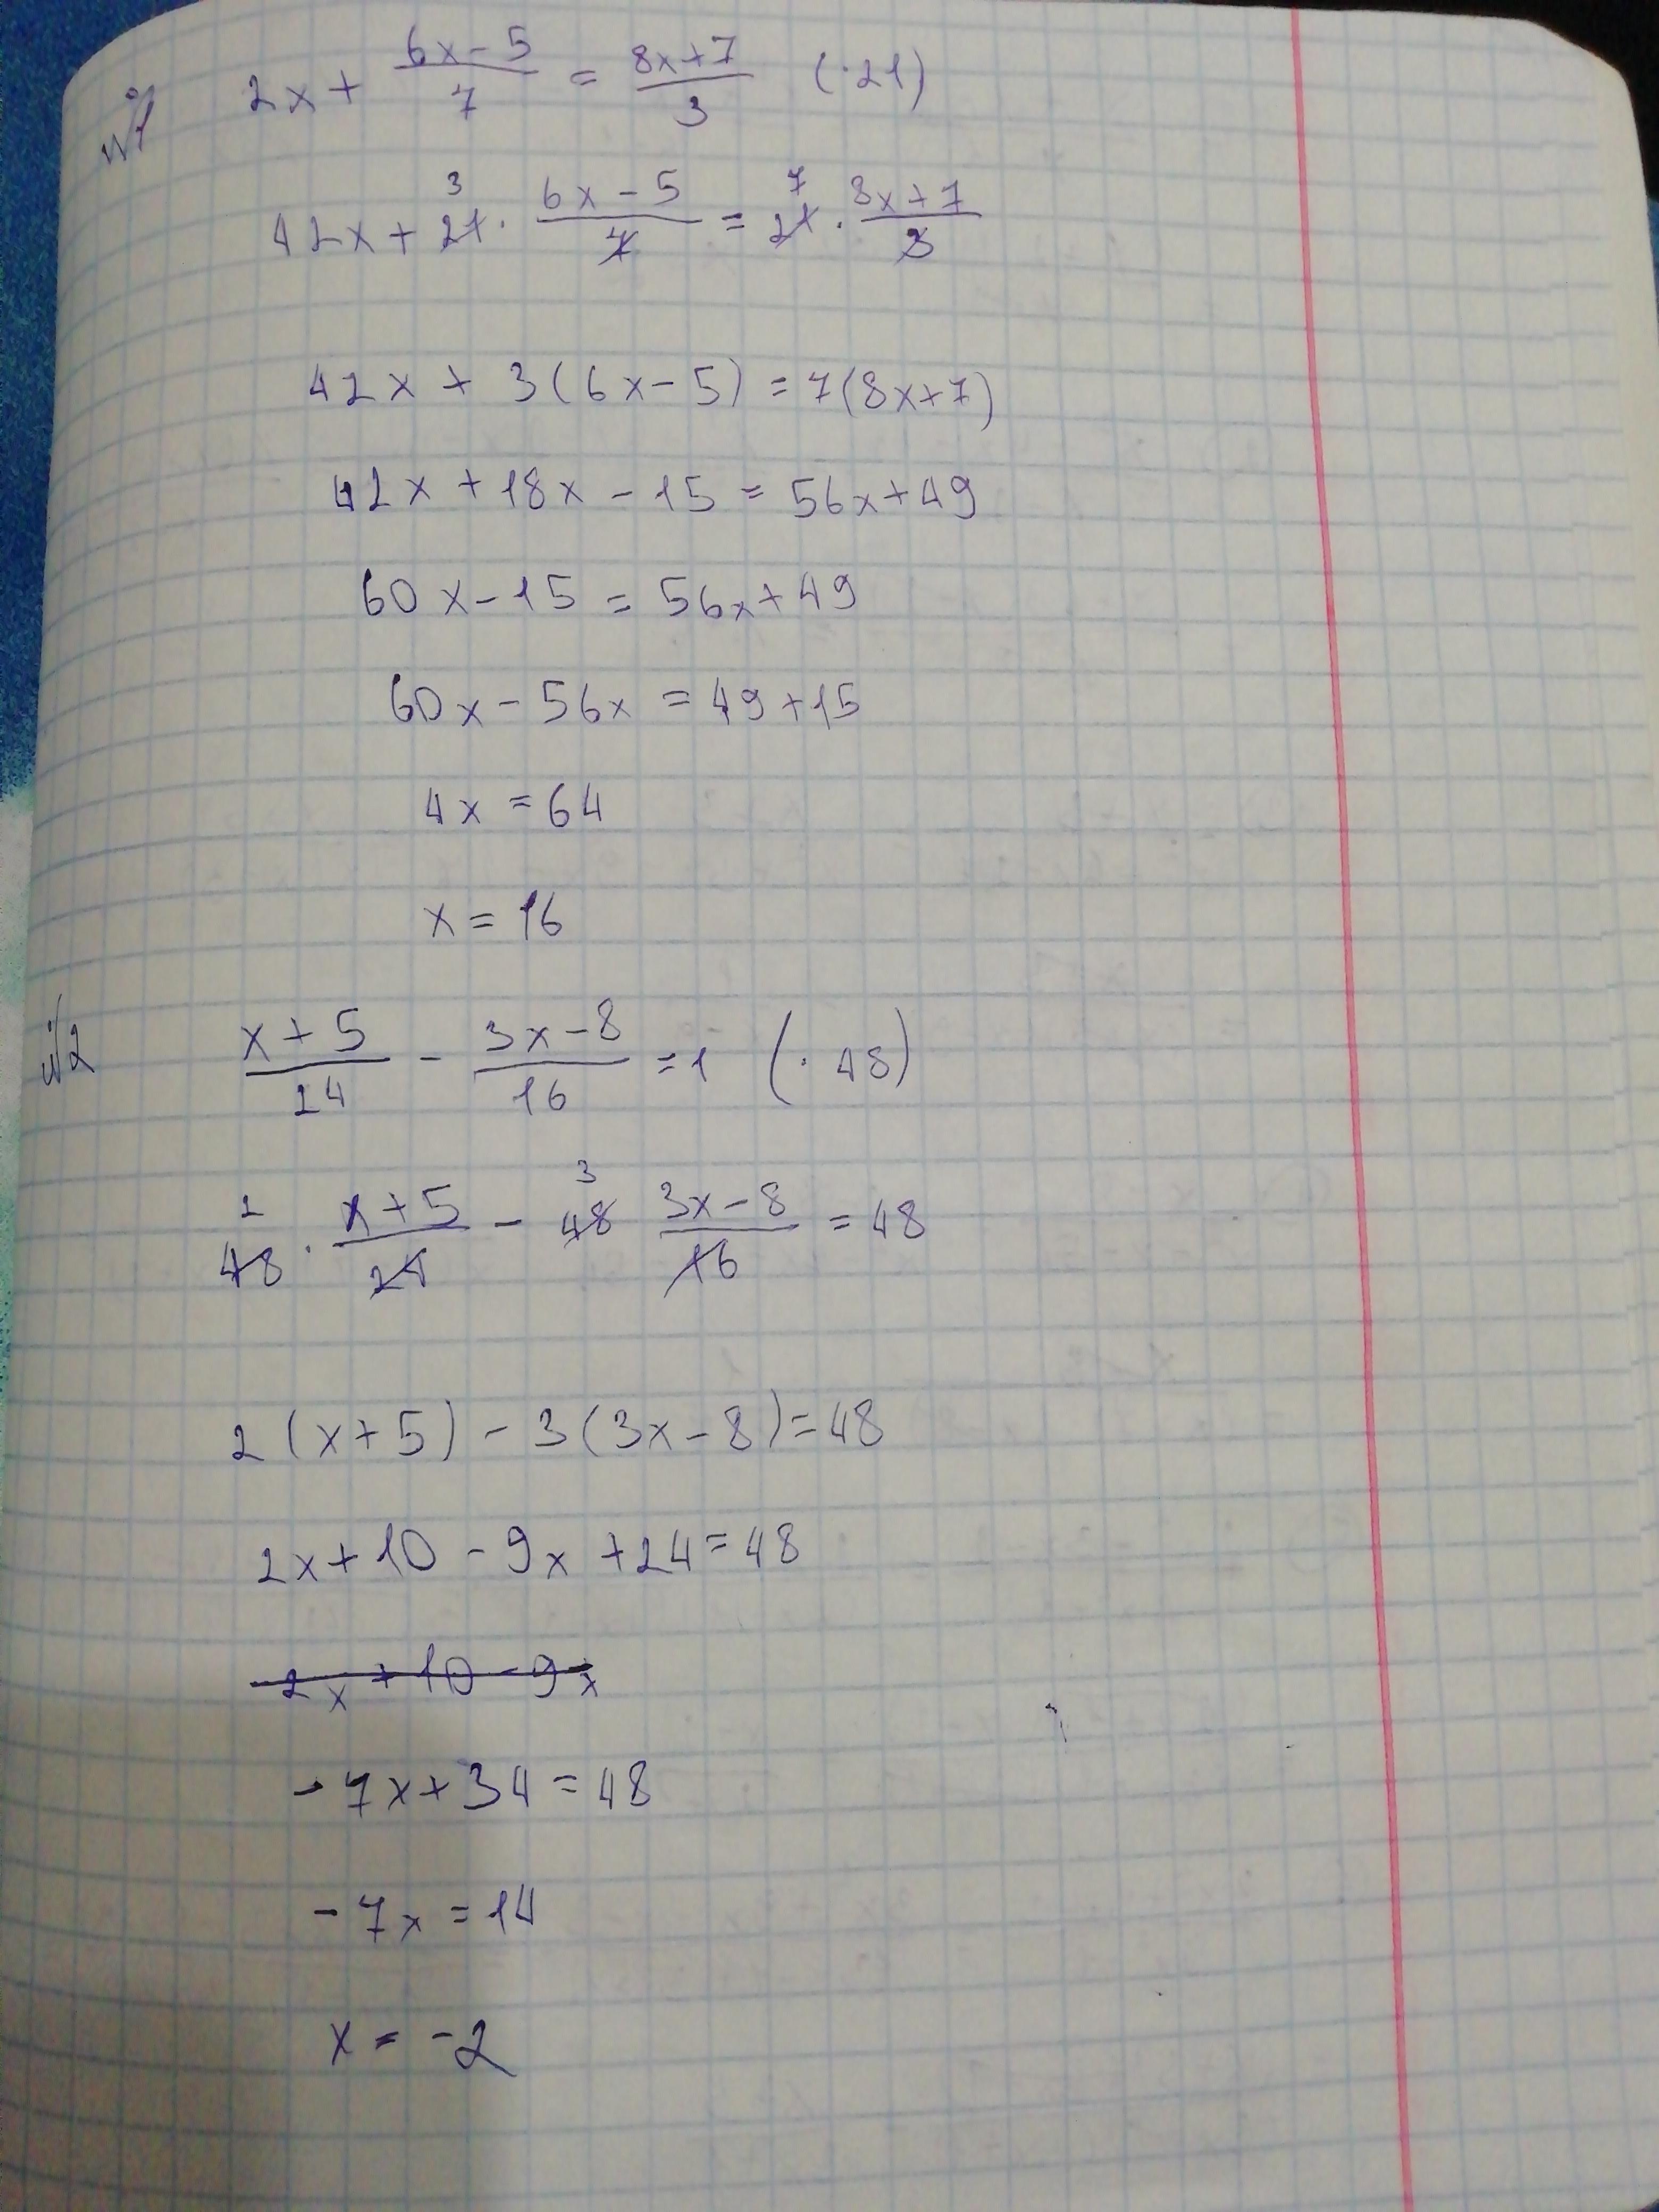 №1 2x + \frac{6x-5}{7} = \frac{8x+7}{3} (·21)
42x + 21 · \frac{6x-5}{7} = 21 · \frac{8x+7}{3}
42x + 3(6x-5) = 7(8x+7)
42x + 18x - 15 = 56x + 49
60x - 15 = 56x + 49
60x - 56x = 49 + 15
4x = 64
x = 16
№2 \frac{x+5}{24} - \frac{3x-8}{16} = 1 (· 48)
48 · \frac{x+5}{24} - 48 \frac{3x-8}{16} = 48
2(x+5) - 3(3x-8) = 48
2x + 10 - 9x + 24 = 48
2x + 10 - 9x
-7x + 34 = 48
-7x = 14
x = -2